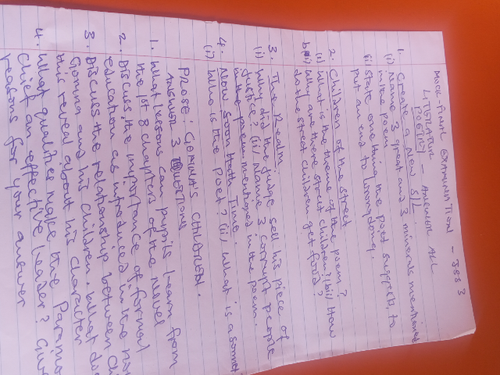 MOCK FINAL EXAMINATION - JSS 3
LITERATURE
POETRY - ANSWER ALL
1. Create a New S/L
(i) Name 3 great and 3 minerals mentioned
in the poem
(ii) State one thing the poet suggests to
put an end to wrongdoing.
2. Children of the Street
(i) What is the theme of the poem?
Why are there street children? How
do the street children get food?
3. The Realm
(i) Why did the judge sell his piece of
Justice? (ii) Name 3 corrupt people
in the poem mentioned in the poem.
4. Now Soon Truth Time
(i) Who is the Poet? (ii) What is a
PROSE: GOMUNA'S CHILDREN.
ANSWER 3 QUESTIONS
1. What lessons can pupils learn from
the 1st 8 chapters of the novel
2. Discuss the importance of formal
education as introduced in the
3. Discuss the relationship between
and his children. What does
this reveal about his character
4. What qualities make the
Chief an effective leader? Give
reasons for your answer